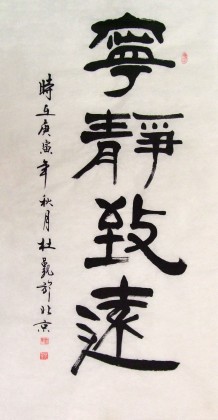 寧靜致遠
時在庚寅年秋月杜 於北京